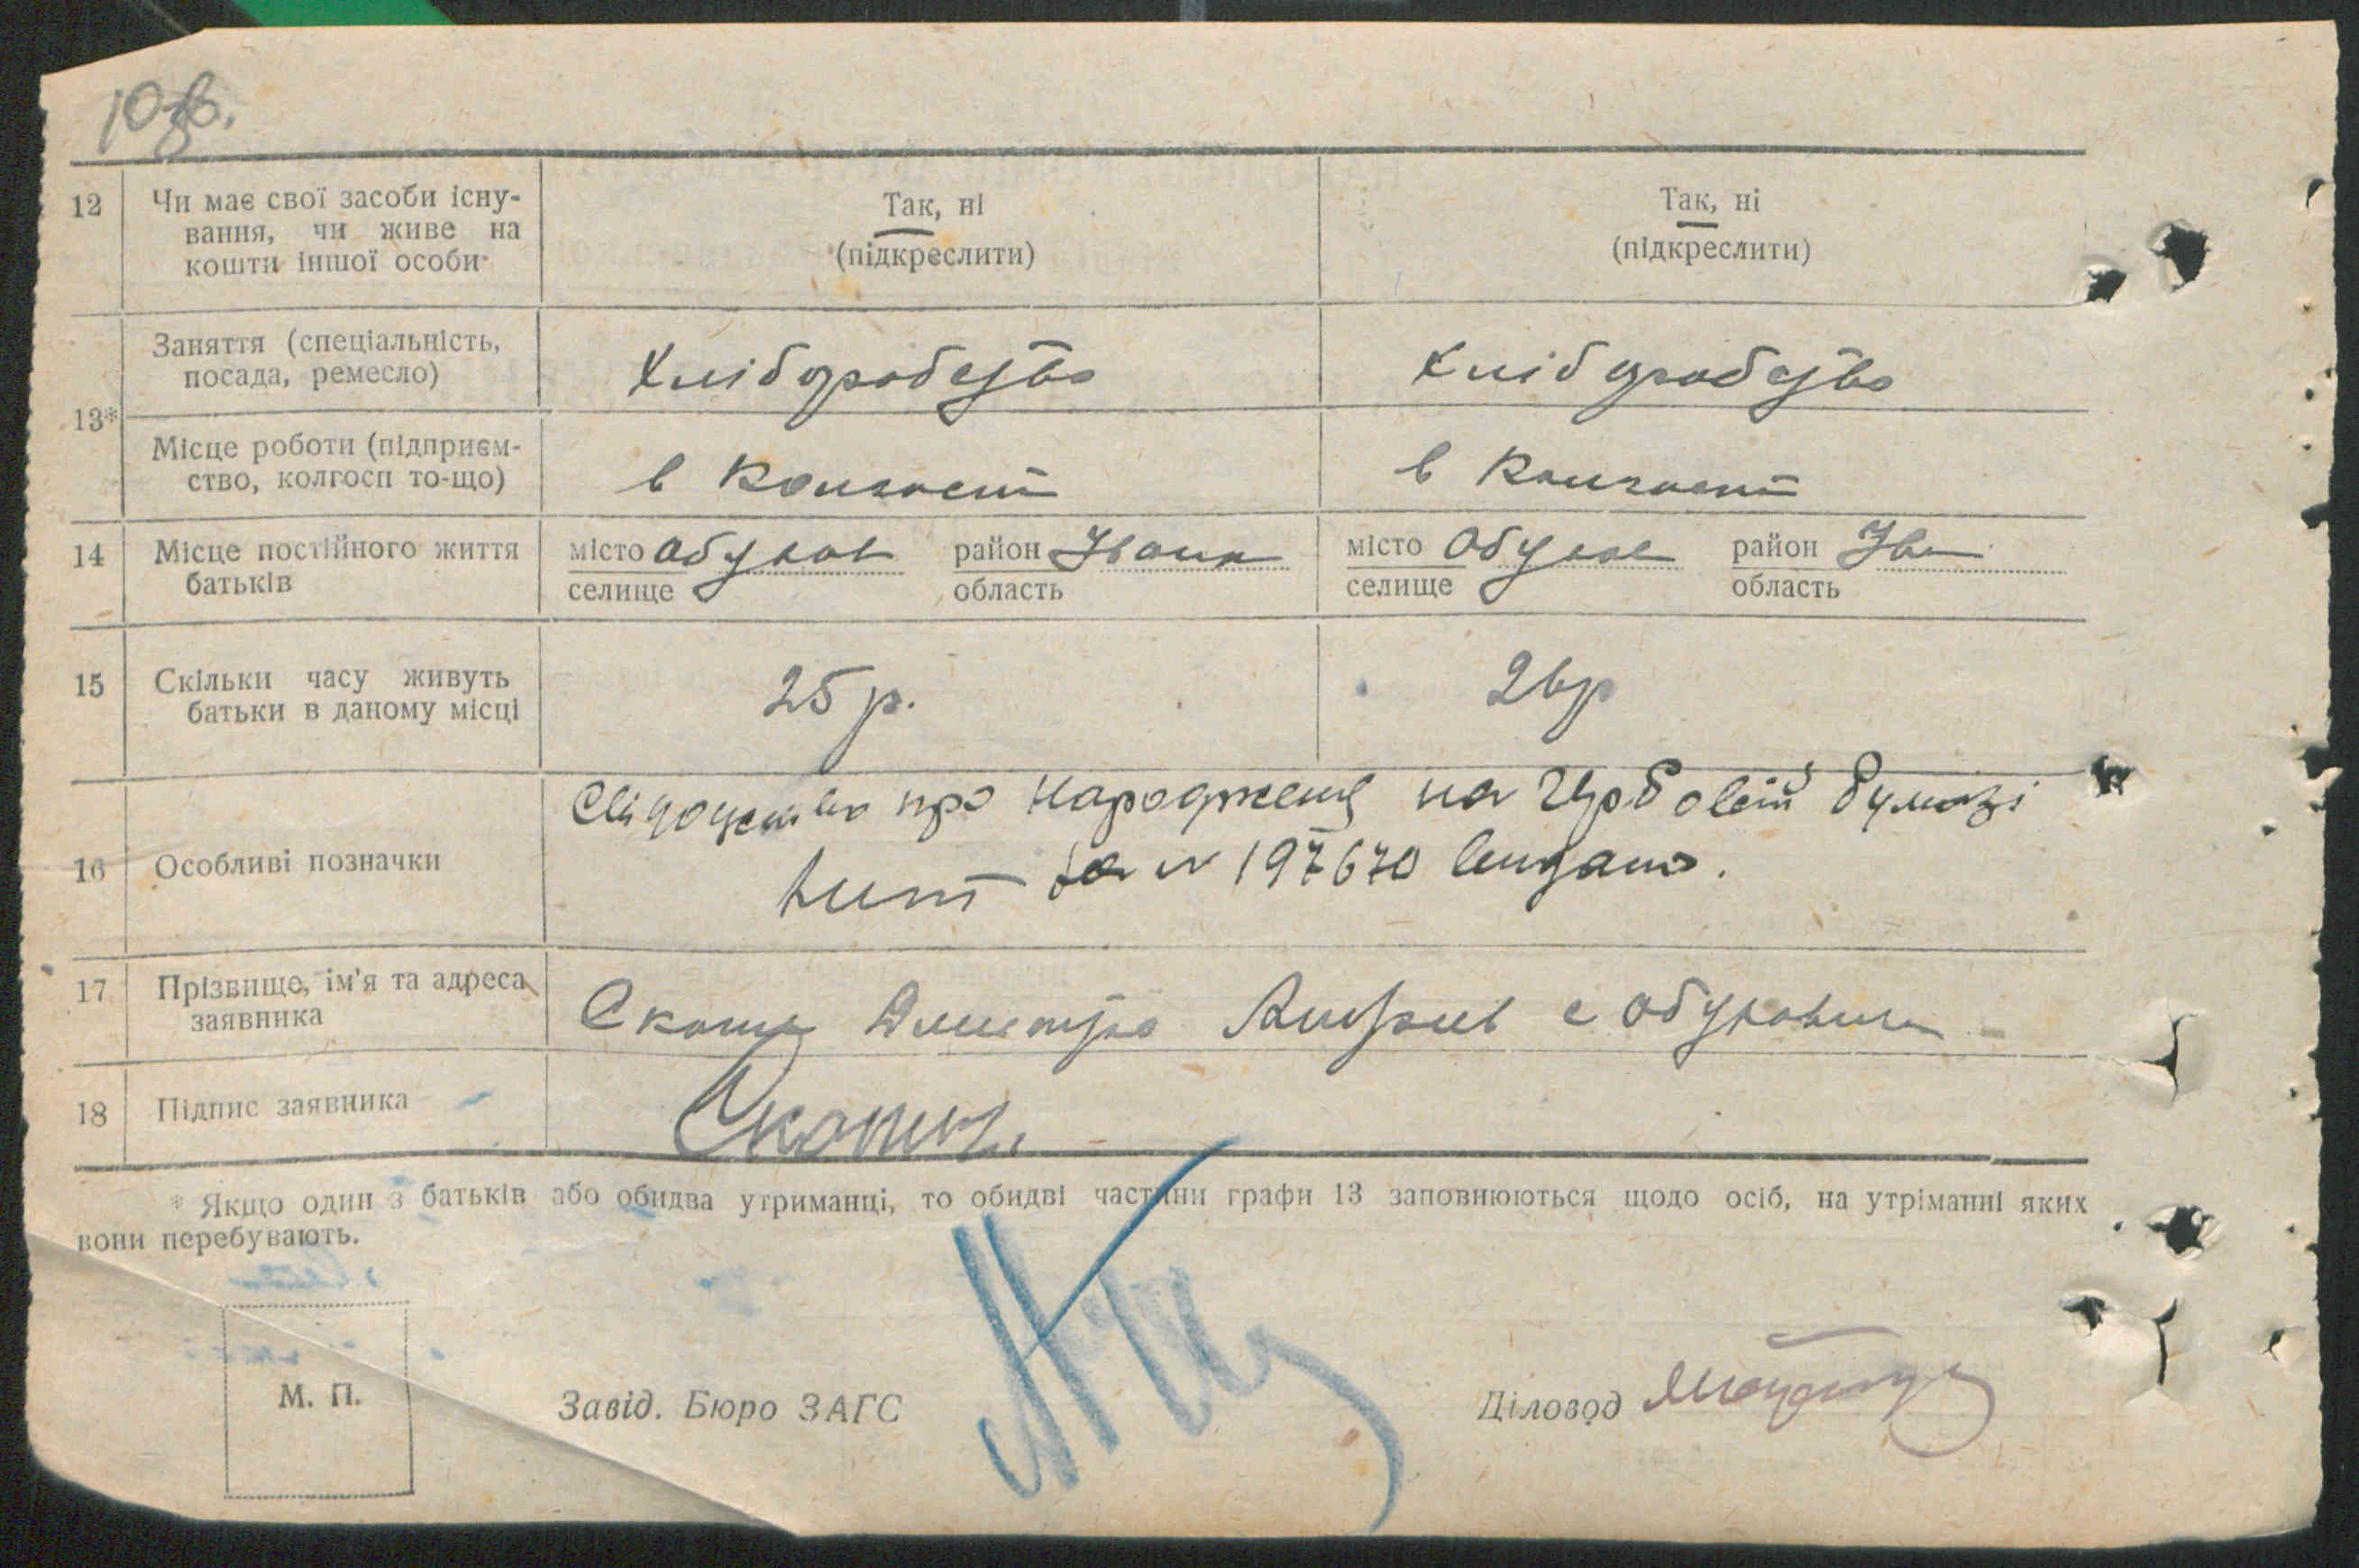 10зв.
12 Чи має свої засоби існу- Так, ні Так, ні
вання, чи живе на (підкреслити) (підкреслити)
кошти іншої особи
Заняття (спеціальність, Хліборобство Хліборобство
посада, ремесло)
13*
Місце роботи (підприєм- в колгоспі в колгоспі
ство, колгосп то-що)
14 Місце постійного життя місто Обухов район місто Обухов район Ів
батьків селище область селище область
15 Скільки часу живуть 25 р. 26р
батьки в даному місці
Свідоцтво про народженя на гербовій бумазі
16 Особливі позначки
лист за N 197670 видано.
17 Прізвище, ім'я та адреса Дмитро Андрієв с
заявника
18 Підпис заявника
* Якщо один з батьків або обидва утриманці, то обидві частини графи 13 заповнюються щодо осіб, на утріманні яких
вони перебувають.
М. П.
Завід. Бюро ЗАГС Діловод